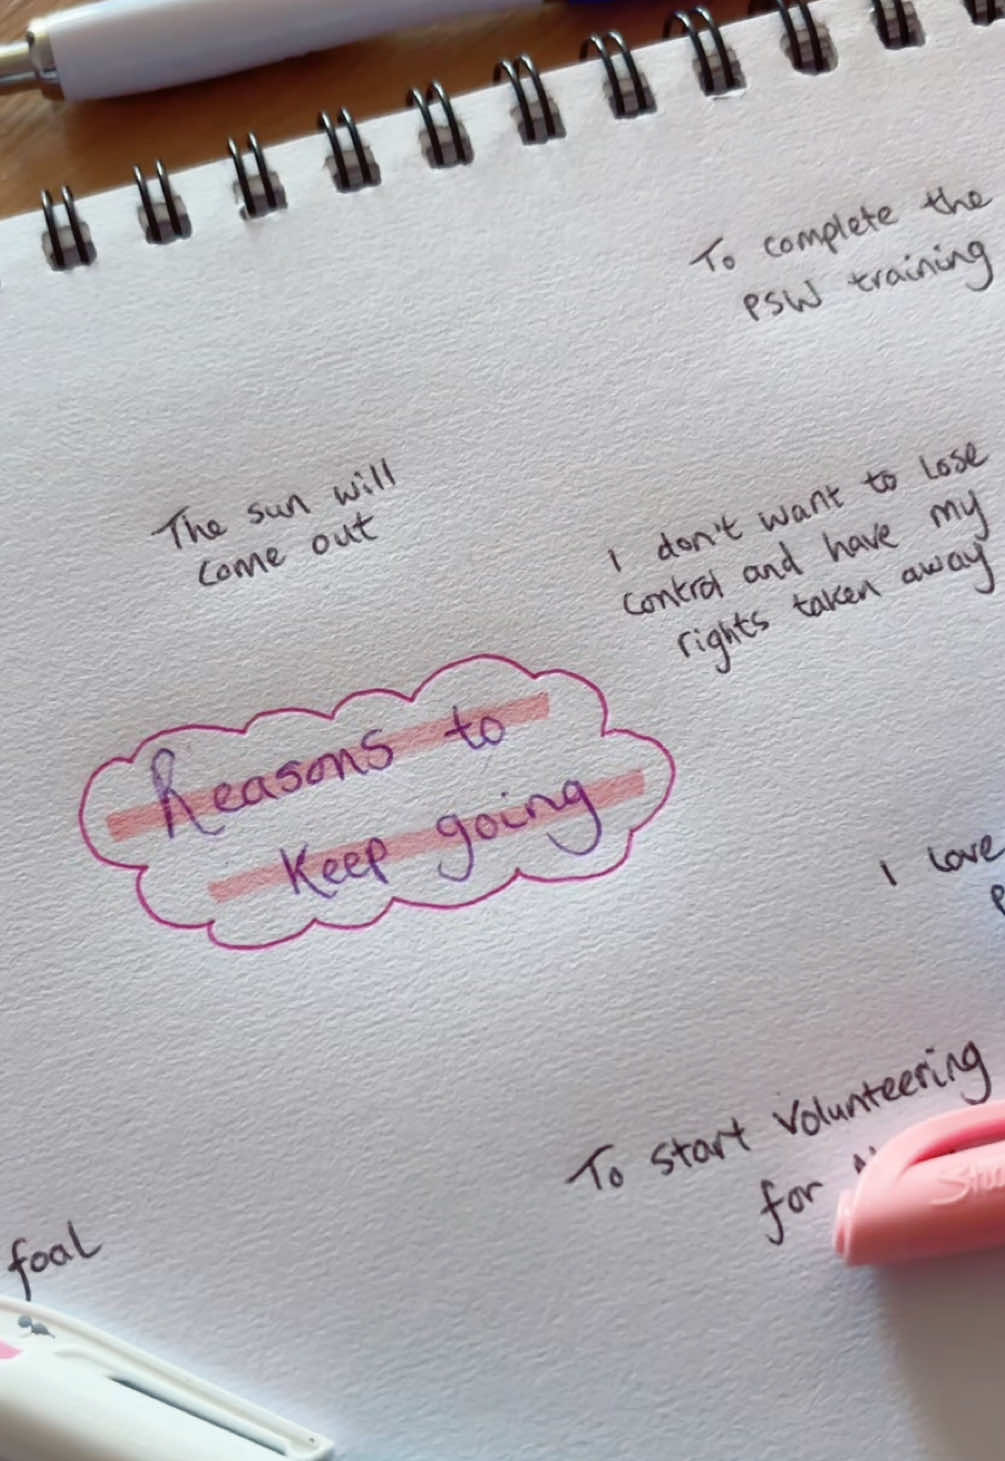 To complete the
PSW training
The sun will
come out
I don't want to lose
control and have my
rights taken away
Reasons to
Keep going
I love
To start volunteering
for
foal